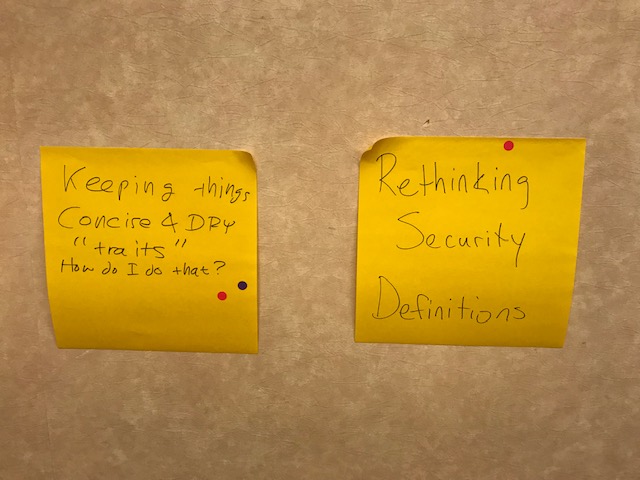 Keeping things
Concise & DRY
"traits"
How do I do that?
Rethinking
Security
Definitions